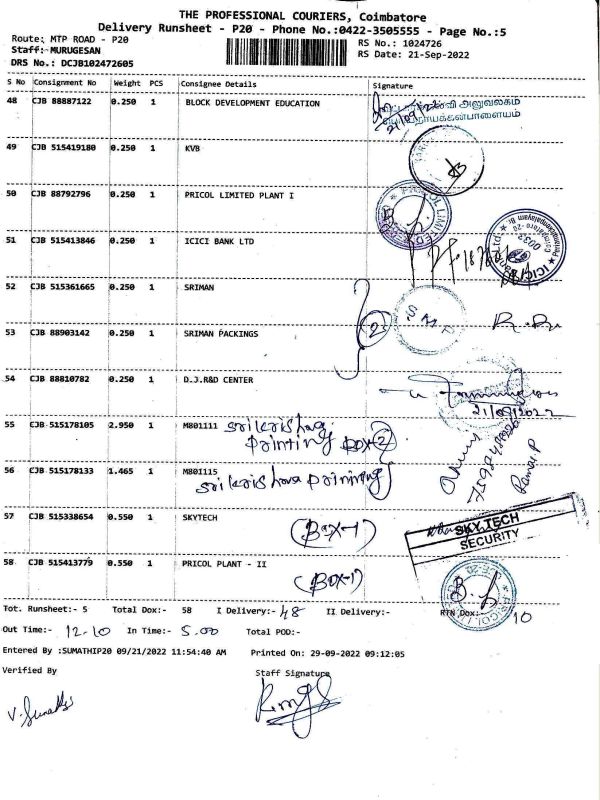 THE PROFESSIONAL COURIERS, Coimbatore
Delivery Runsheet - P20 - Phone No.:0422-3505555 - Page No.:5
Route: MTP ROAD - P20 RS No.: 1024726
Staff: MURUGESAN RS Date: 21-Sep-2022
DRS No.: DCJB102472605
S No Consignment No Weight PCS Consignee Details Signature
48 CJB 88887122 0.250 1 BLOCK DEVELOPMENT EDUCATION
49 CJB 515419180 0.250 1 KVB
50 CJB 88792796 0.250 1 PRICOL LIMITED PLANT I
51 CJB 515413846 0.250 1 ICICI BANK LTD
52 CJB 515361665 0.250 1 SRIMAN
53 CJB 88903142 0.250 1 SRIMAN PACKINGS 2 S M P
54 CJB 88810782 0.250 1 D.J.R&D CENTER
21/09/2022
55 CJB 515178105 2.950 1 M801111 Srikrishna
printing BOX-2
56 CJB 515178133 1.465 1 M801115
Srikrishna printing
57 CJB 515338654 0.550 1 SKYTECH (Box-1) SKY TECH
SECURITY
58 CJB 515413779 0.550 1 PRICOL PLANT - II
(Box-1)
Tot. Runsheet:- 5 Total Dox:- 58 I Delivery:- 48 II Delivery:- RTN Dox:- 10
Out Time:- 12.10 In Time:- 5.00 Total POD:-
Entered By :SUMATHIP20 09/21/2022 11:54:40 AM Printed On: 29-09-2022 09:12:05
Verified By Staff Signature